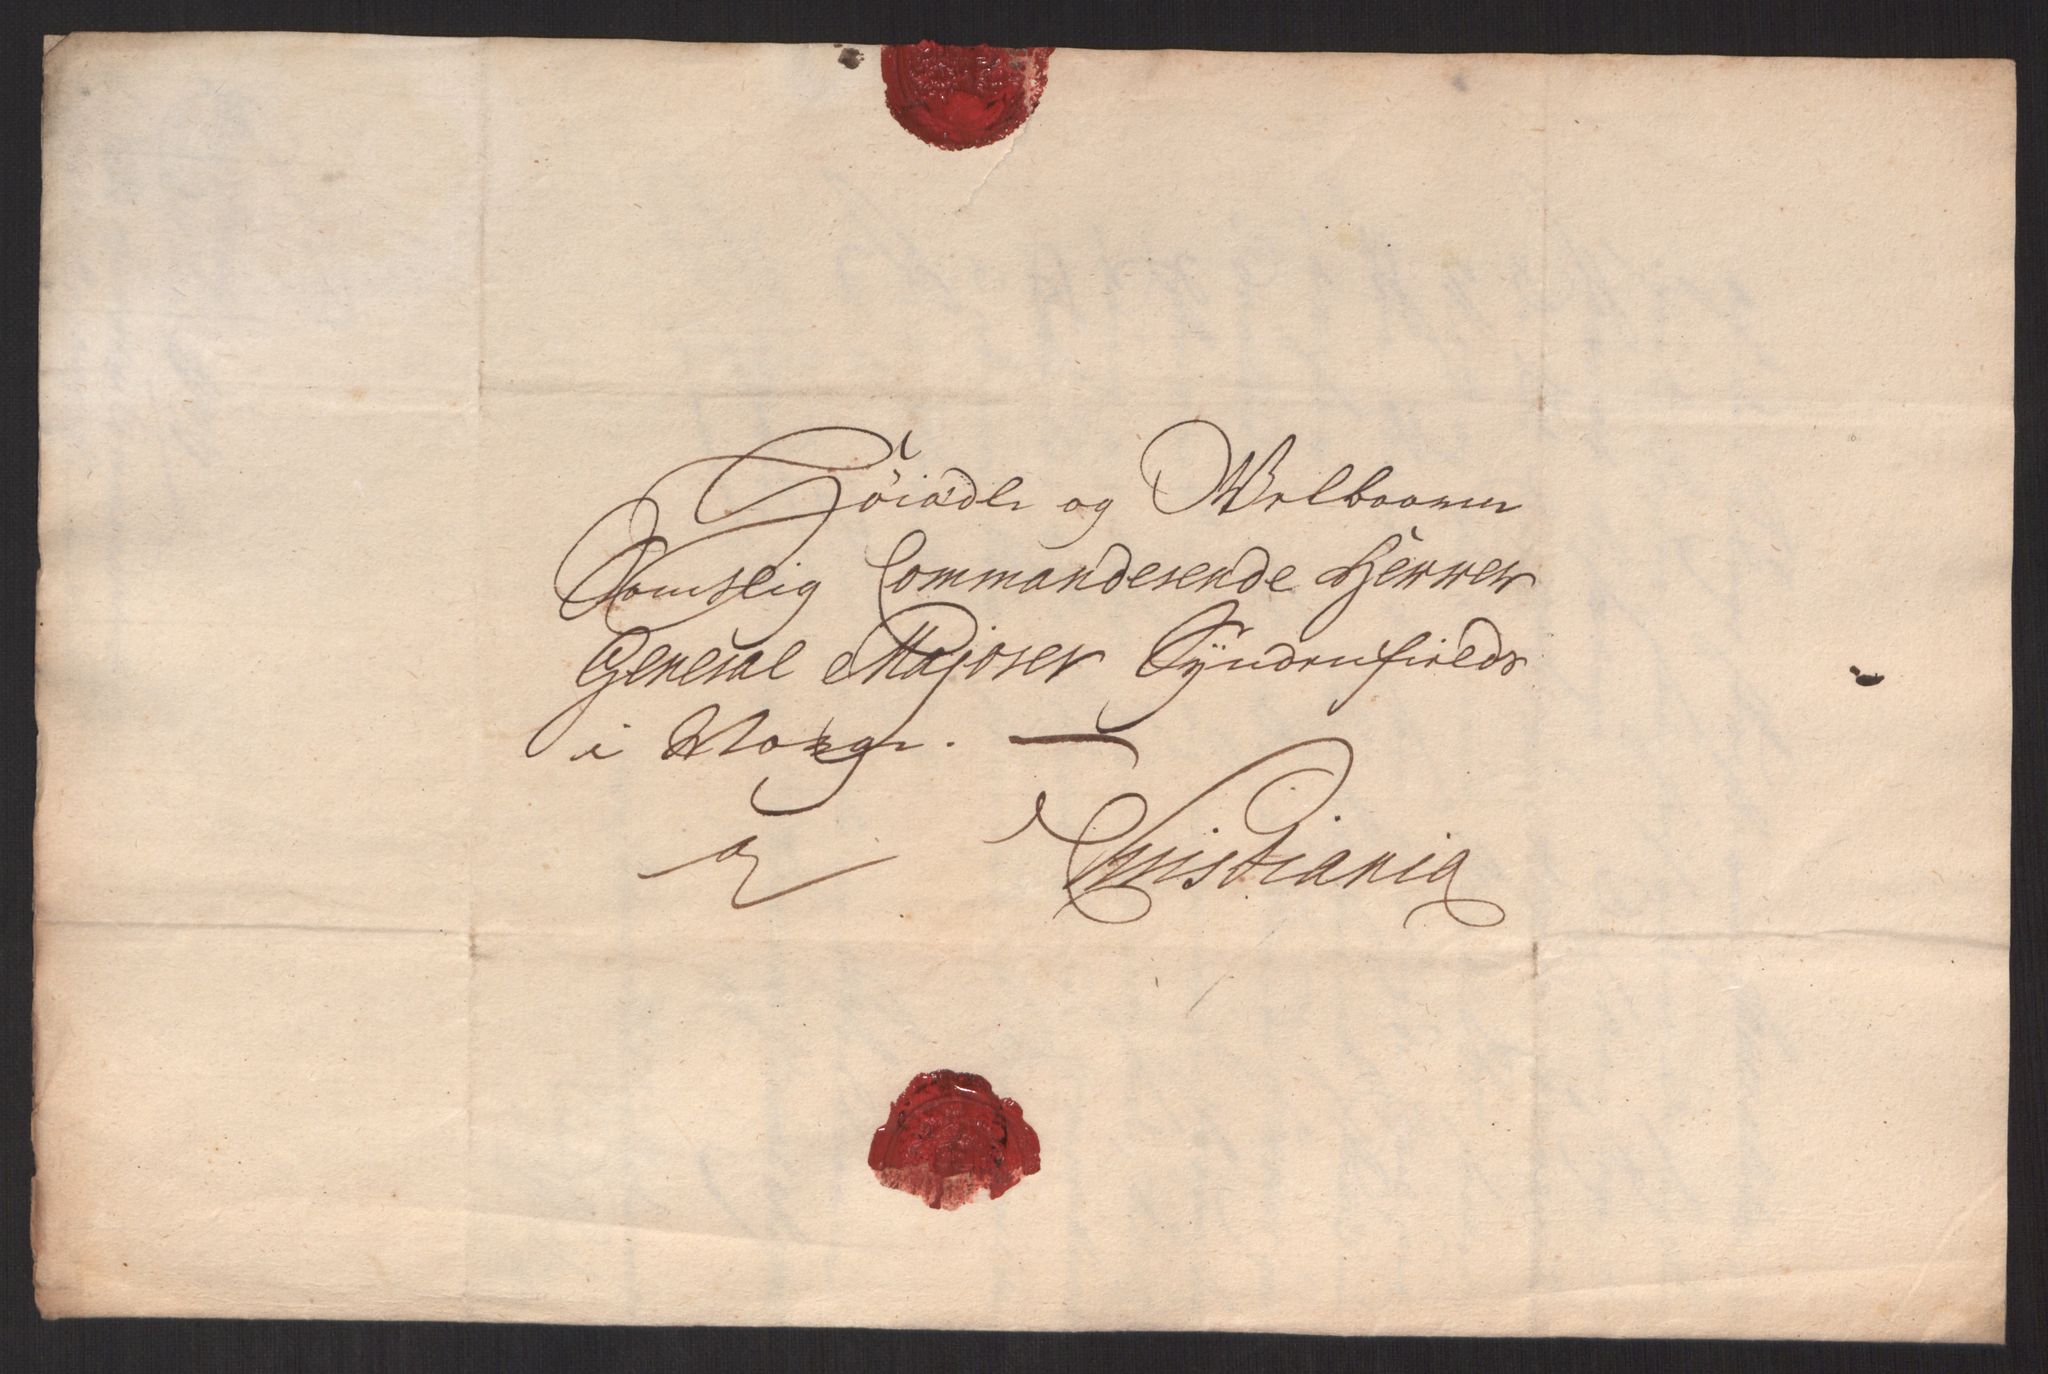 Høiædle og Welbaarne
Samtlig Commanderende Herrer
General Majorer Syndenfields
i Norge.
a
Christiania